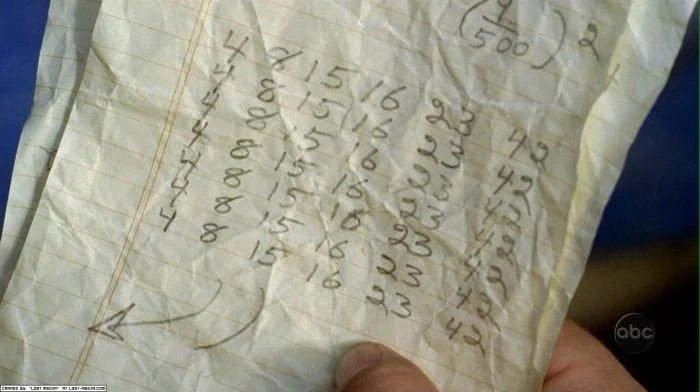 ( 500 ) 2
4 8 15 16 23 42
4 8 15 16 23 42
4 8 15 16 23 42
4 8 15 16 23 42
4 8 15 16 23 42
4 8 15 16 23 42
4 8 15 16 23 42
abc
CAPPED BY "LOST MEDIA" AT LOST-MEDIA.COM